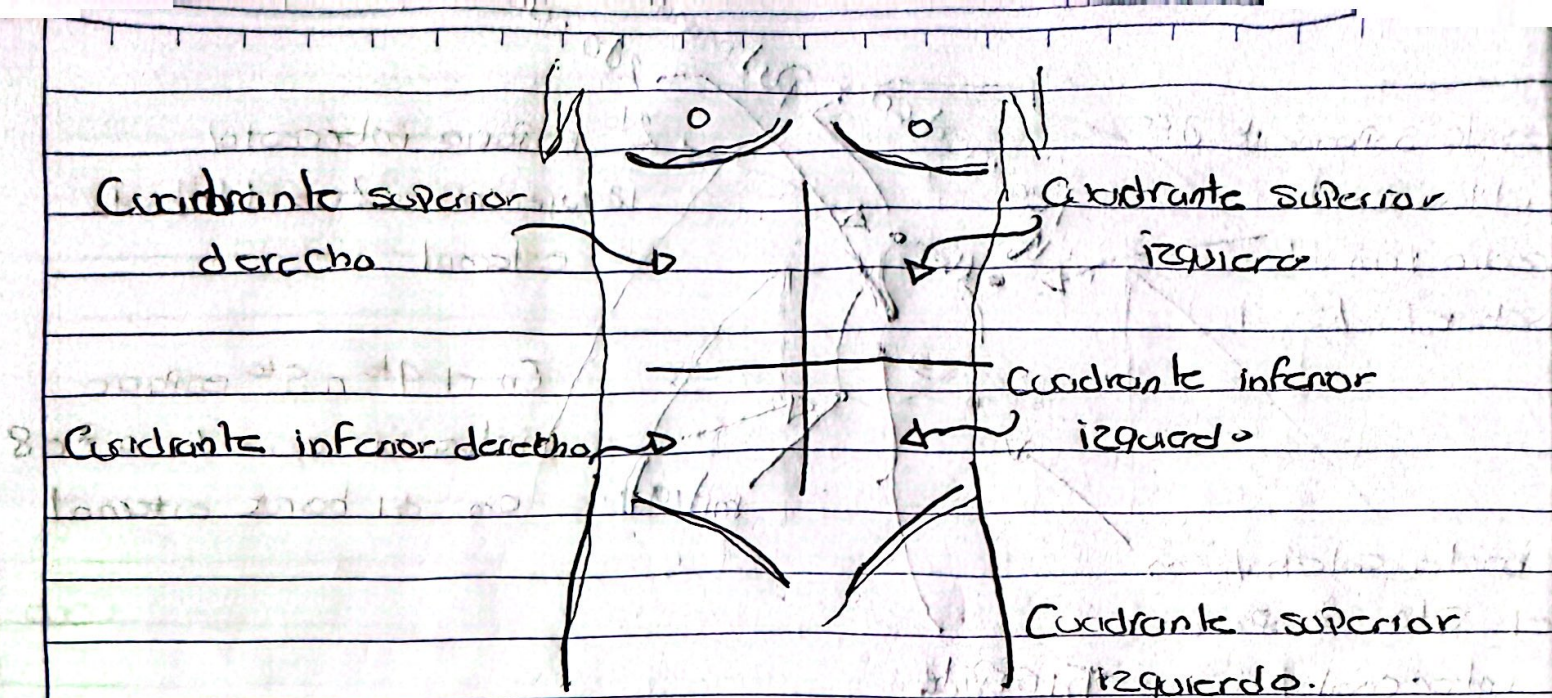 Cuadrante superior
derecho
Cuadrante superior
izquiero
Cuadrante inferior
izquierdo
Cuadrante inferior derecho
Cuadrante superior
izquierdo.